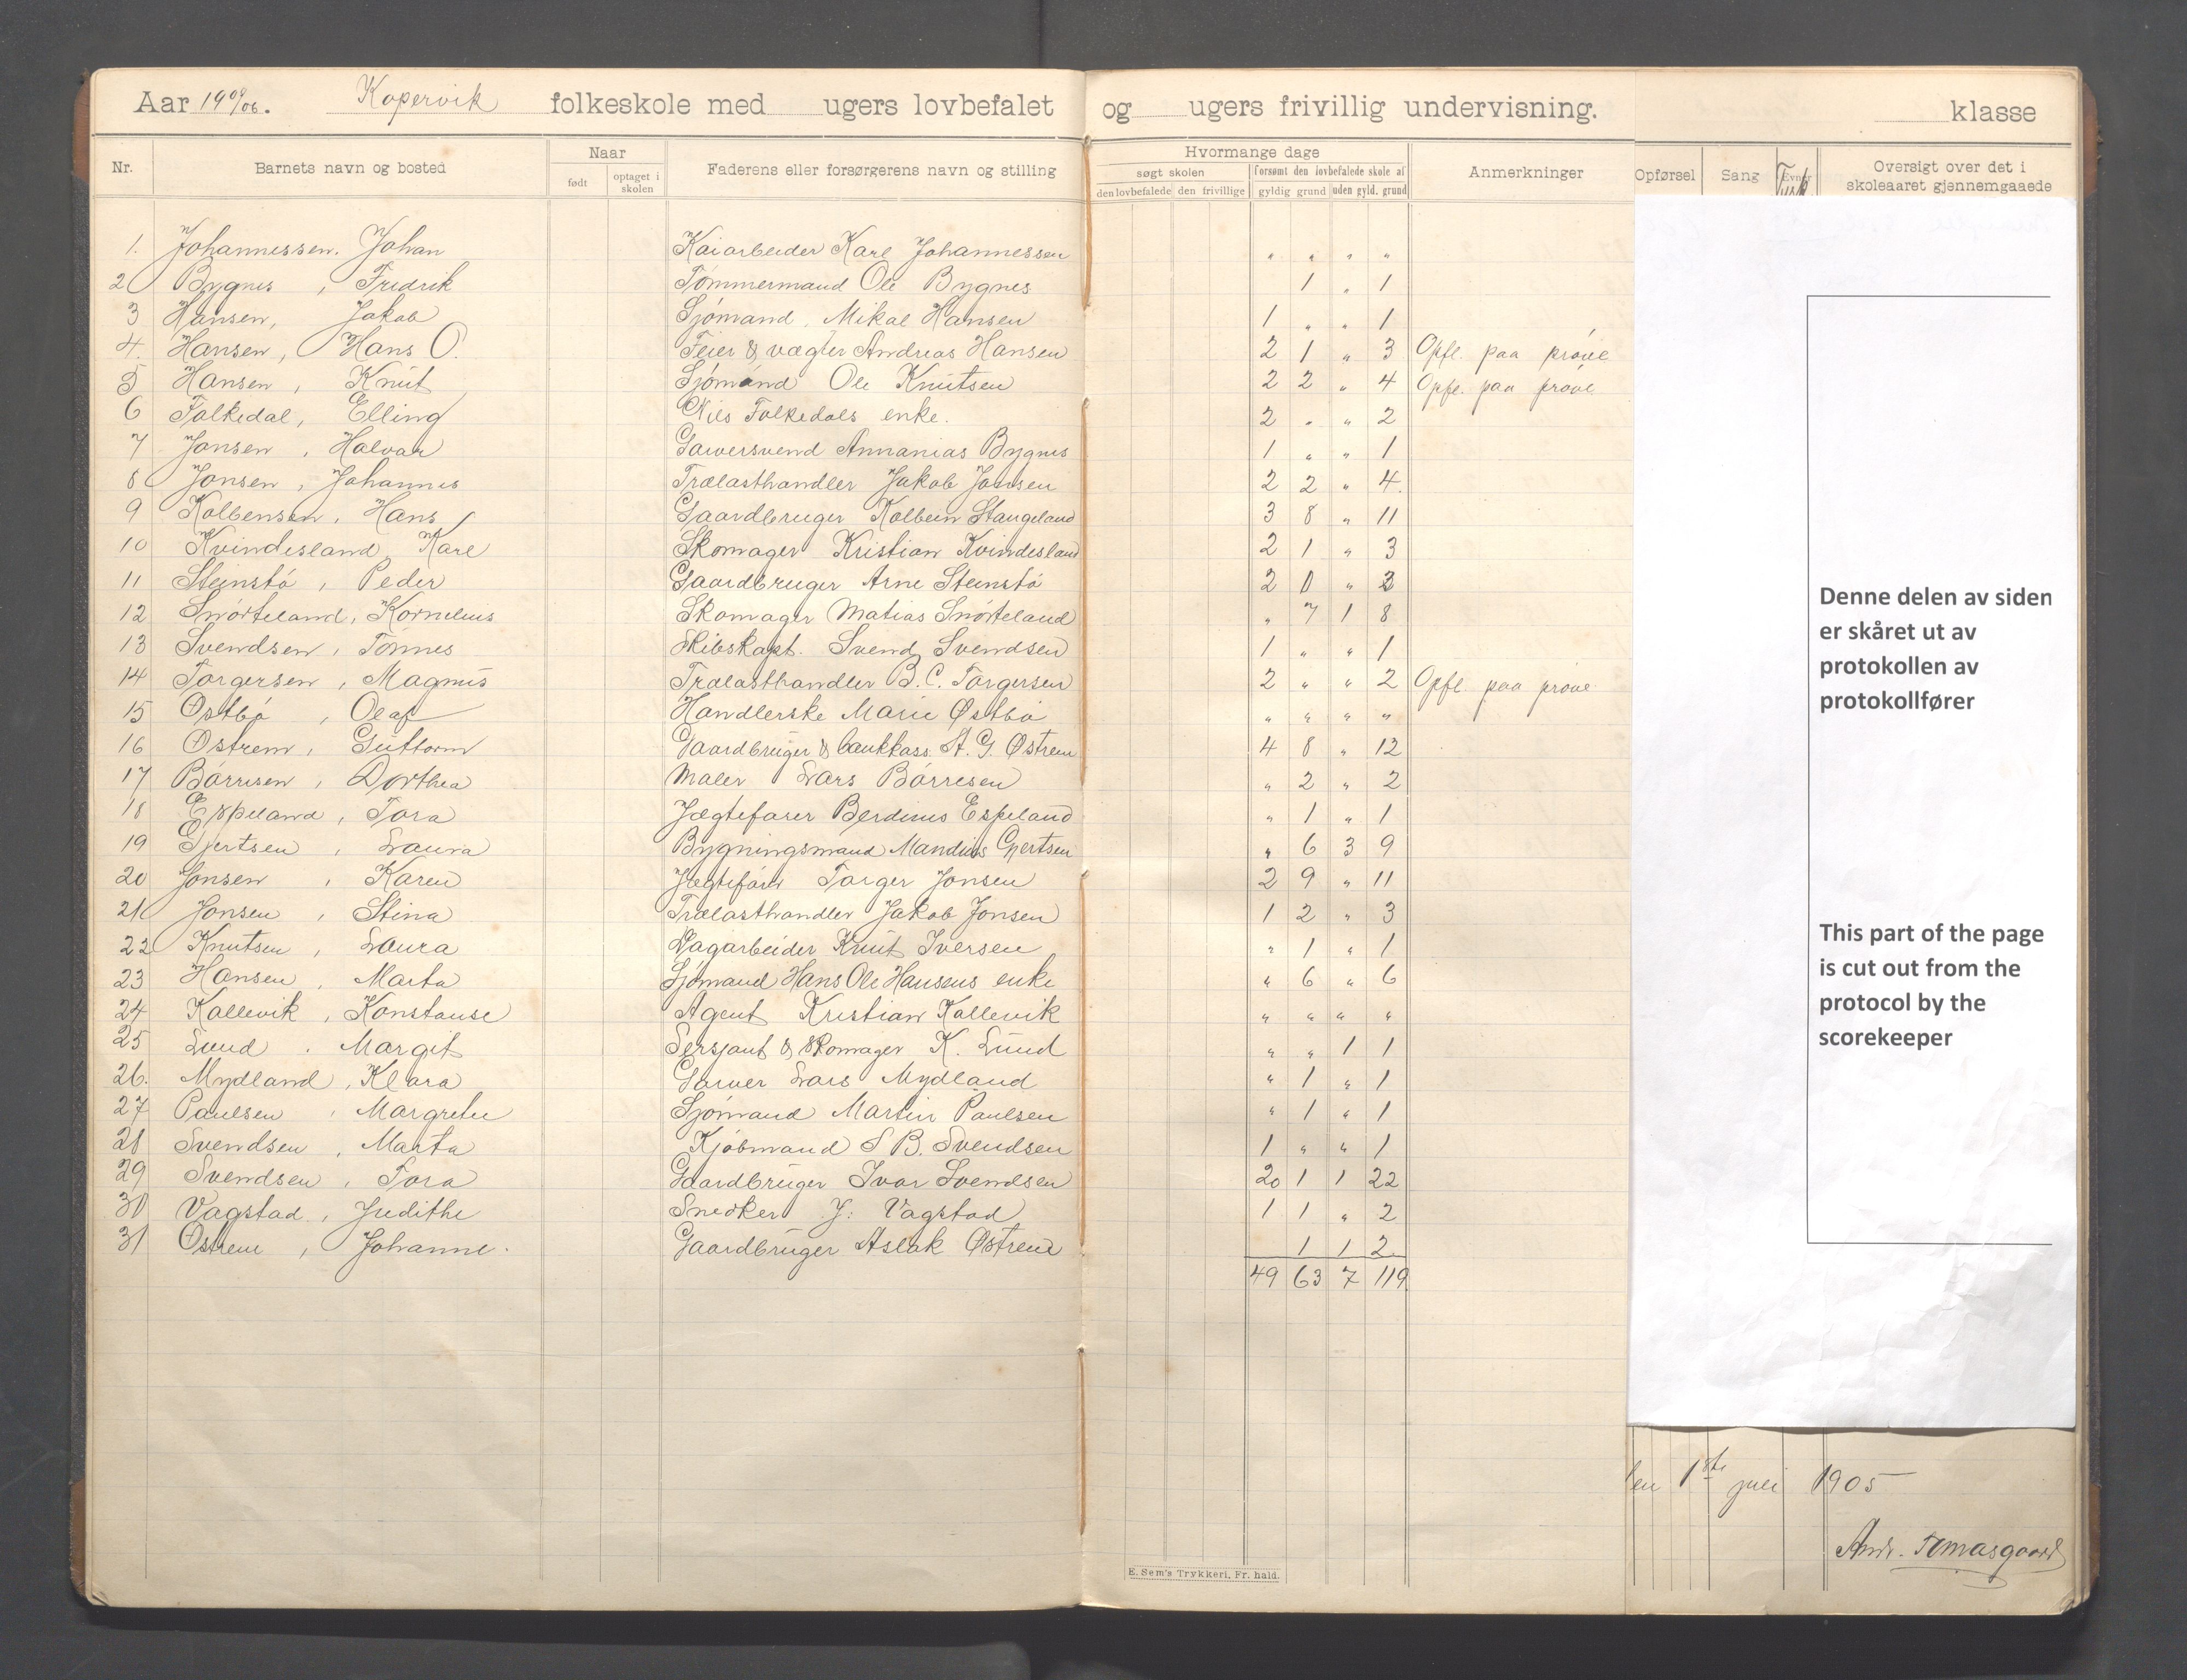 Aar 1904/06. Kopervik folkeskole med ugers lovbefalet og ugers frivillig undervisning. klasse
Nr. Barnets navn og bosted Naar født optaget i skolen Faderens eller forsørgerens navn og stilling Hvormange dage søgt skolen den lovbefalede den frivillige forsømt den lovbefalede skole af gyldig grund uden gyld. grund Anmerkninger Opførsel Sang Evner Tysk Oversigt over det i skoleaaret gjennemgaaede
1. Johannessen. Johan Kaiarbeider Karl Johannessen " " " "
2 Bygnes, Fredrik Tømmermand Ole Bygnes 1 " 1
3 Hansen, Jakob Sjømand. Mikal Hansen 1 " " 1
4. Hansen, Hans O. Feier & vægter Andreas Hansen 2 1 " 3 Opfl. paa prøve
5 Hansen, Knut Sjømand Ole Knutsen 2 2 " 4 Opfl. paa prøve
6 Falkedal, Elling Nils Falkedals enke. 2 " " 2
7 Jansen, Halvar Garversvend Annanias Bygnes 1 " " 1
8 Jonsen, Johannes Trælasthandler Jakob Jonsen 2 2 " 4.
9 Kolbensen, Hans Gaardbruger Kolbein Stangeland 3 8 " 11
10 Kvindesland Karl Skomager Kristian Kvindesland 2 1 " 3
11 Steinstø, Peder Gaardbruger Arne Steinstø 2 0 " 3
12 Snørteland, Kornelius Skomager Matias Snørteland " 7 1 8
13 Svendsen, Tønnes Skibskapt. Svend Svendsen 1 " " 1
14 Torgersen, Magnus Trælasthandler B. C. Torgersen 2 " " 2 Opfl. paa prøve
15 Østbø, Olaf Handlerske Marie Østbø " " " "
16 Østrem, Guttorm Gaardbruger & bankkass. A. G. Østrem 4 8 " 12
17 Børresen, Dorthea Maler Lars Børresen " 2 " 2
18 Espeland, Tora Jægtefører Berdinus Espeland " 1 " 1
19 Gjertsen, Laura Bygningsmand Mandius Gjertsen " 6 3 9
20 Jonsen, Karen Jægtefører Torger Jonsen 2 9 " 11
21 Jonsen, Stina Trælasthandler Jakob Jonsen 1 2 " 3
22 Knutsen, Laura Dagarbeider Knut Iversen " 1 " 1
23 Hansen, Marta Sjømand Hans Ole Hansens enke " 6 " 6
24 Kallevik, Konstanse Agent Kristian Kallevik " " " "
25 Lund. Margit Sersjant & skomager K. Lund " " 1 1
26. Mydland, Klara Garver Lars Mydland " 1 " 1
27 Paulsen, Margrethe Sjømand Martin Paulsen " 1 " 1
28 Svendsen, Marta Kjøbmand S B. Svendsen 1 " " 1
29 Svendsen, Tora Gaardbruger Ivar Svendsen 20 1 1 22
30 Vagstad, Judithe Snedker J: Vagstad 1 1 " 2
31 Østrem, Johanne. Gaardbruger Aslak Østrem 1 1 2
49 63 7 119
Denne delen av siden
er skåret ut av
protokollen av
protokollfører
This part of the page
is cut out from the
protocol by the
scorekeeper
en 1ste juli 1905
Andr. Tomasgaard
E. Sem's Trykkeri, Fr. hald.